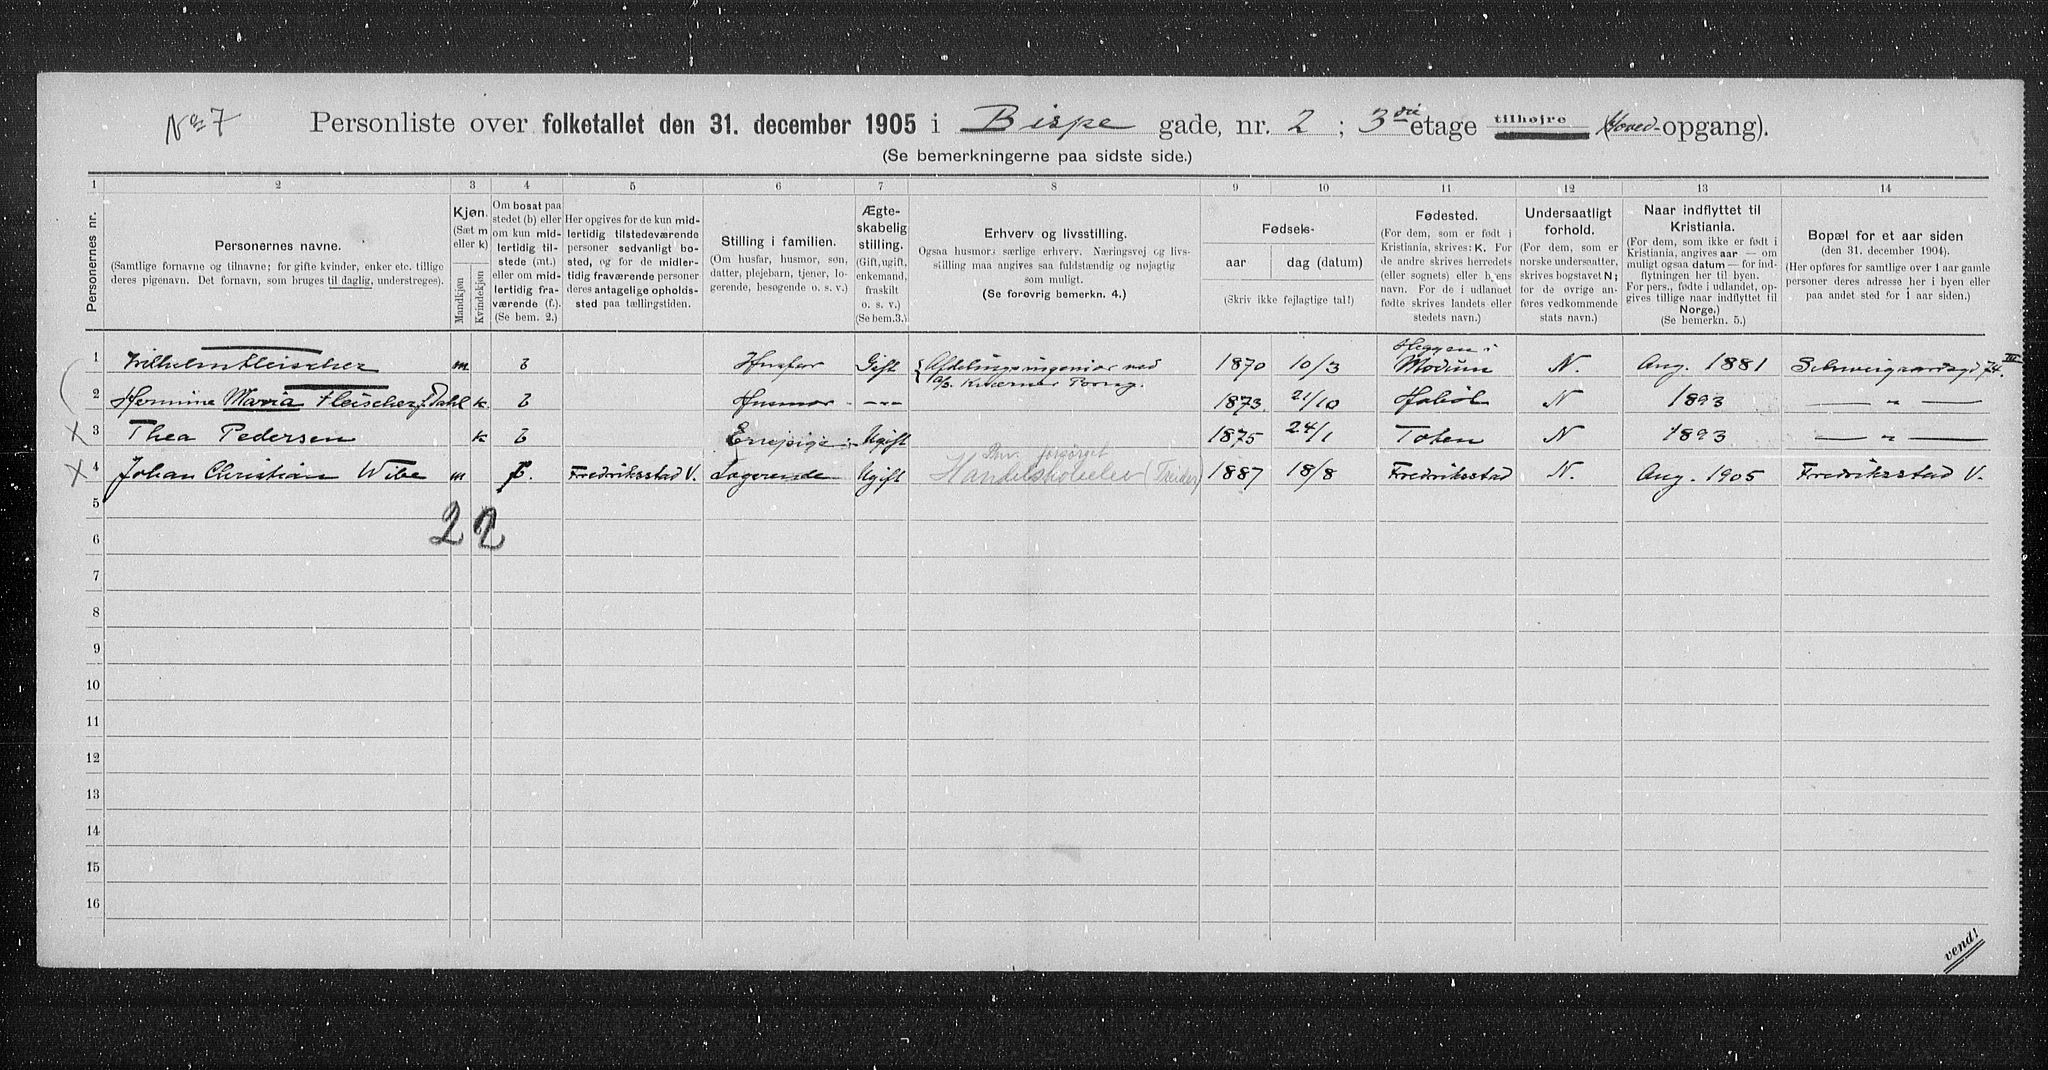 No 7 Personliste over folketallet den 31. december 1905 i Bispe gade, nr. 2 ; 3die etage tilhøjre (Hoved-opgang).
(Se bemerkningerne paa sidste side.)
1 2 3 4 5 6 7 8 9 10 11 12 13 14
Personernes nr.
Personernes navne.
(Samtlige fornavne og tilnavne; for gifte kvinder, enker etc. tillige
deres pigenavn. Det fornavn, som bruges til daglig, understreges).
Kjøn.
(Sæt m
eller k)
Mandkjøn
Kvindekjøn
Om bosat paa
stedet (b) eller
om kun mid-
lertidig til-
stede (mt.)
eller om mid-
lertidig fra-
værende (f.)
(Se bem. 2.)
Her opgives for de kun mid-
lertidig tilstedeværende
personer sedvanligt bo-
sted, og for de midler-
tidig fraværende personer
deres antagelige opholds-
sted paa tællingstiden.
Stilling i familien.
(Om husfar, husmor, søn,
datter, plejebarn, tjener, lo-
gerende, besøgende o. s. v.)
Ægte-
skabelig
stilling.
(Gift, ugift,
enkemand,
fraskilt
o. s. v.)
(Se bem.3.)
Erhverv og livsstilling.
Ogsaa husmors særlige erhverv. Næringsvej og livs-
stilling maa angives saa fuldstændig og nøjagtig
som muligt.
(Se forøvrig bemerkn. 4.)
Fødsels-
aar
dag (datum)
(Skriv ikke fejlagtige tal!)
Fødested.
(For dem, som er født i
Kristiania, skrives: K. For
de andre skrives herredets
(eller sognets) eller byens
navn. For de i udlandet
fødte skrives landets eller
stedets navn.)
Undersaatligt
forhold.
(For dem, som er
norske undersaatter,
skrives bogstavet N;
for de øvrige an-
føres vedkommende
stats navn.)
Naar indflyttet til
Kristiania.
(For dem, som ikke er født i
Kristiania, angives aar — om
muligt ogsaa datum — for ind-
flytningen her til byen.
For pers., fødte i udlandet, op-
gives tillige naar indflyttet til
Norge.)
(Se bemerkn. 5.)
Bopæl for et aar siden
(den 31. december 1904).
(Her opføres for samtlige over 1 aar gamle
personer deres adresse her i byen eller
paa andet sted for 1 aar siden.)
1 Wilhelm Fleischer m b Husfar Gift Afdelingsingeniør ved 1870 10/3 Heggen i Modum N. Aug. 1881 Schweigaardsgd 74. III
a/s. Kværner Brug.
2 Hermine Maria Fleischer f. Dahl k b Husmor — — — 1873. 21/10 Hobøl N 1893 — „ —
3 Thea Pedersen k b Enepige Ugift 1875 24/1 Toten N 1893 — „ —
4 Johan Christian Wibe m f. Fredriksstad V. Logerende Ugift forsørget Handelsskoleelev 1887 18/8 Fredriksstad N. Aug. 1905 Fredriksstad V.
5
2 2
6
7
8
9
10
11
12
13
14
15
16
vend!